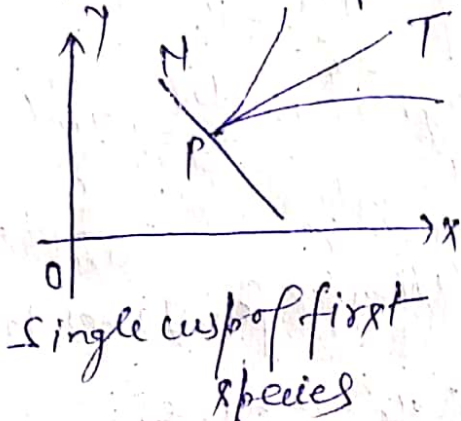 y
N
T
P
x
O
Single cusp of first
species